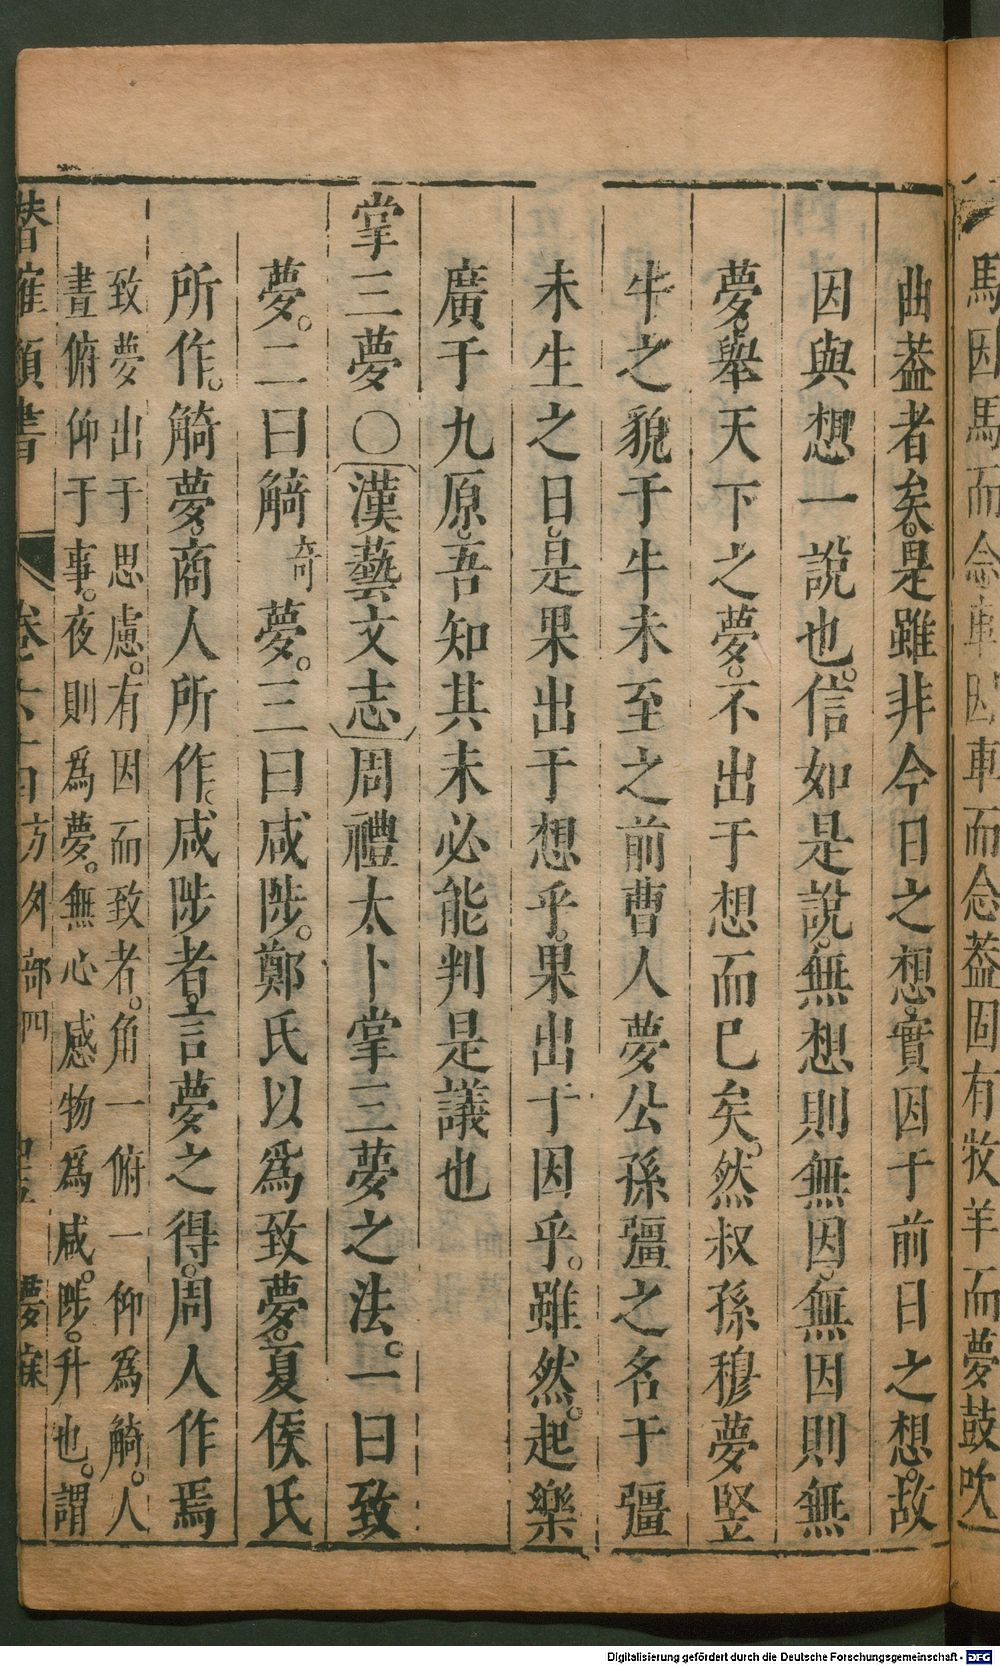 馬因馬而念車因車而念葢固有牧羊而夢鼓吹
曲葢者矣。是雖非今日之想。實因于前日之想。故
因與想一說也。信如是說。無想則無因。無因則無
夢。舉天下之夢。不出于想而已矣。然叔孫穆夢竪
牛之貌于牛未至之前曹人夢公孫彊之名于彊
未生之日。是果出于想乎。果出于因乎。雖然。起樂
廣于九原。吾知其未必能判是議也
掌三夢〇漢藝文志周禮太卜掌三夢之法。一曰致
夢。二曰觭奇夢。三曰咸陟。鄭氏以爲致夢。夏侯氏
所作。觭夢。商人所作。咸陟者。言夢之得。周人作焉
致夢出于思慮。有因而致者。角一俯一仰爲觭。人
晝俯仰于事。夜則爲夢。無心感物爲咸。陟。升也。謂
潛確類書 卷 百 方外部四 夢寐
Digitalisierung gefördert durch die Deutsche Forschungsgemeinschaft - DFG